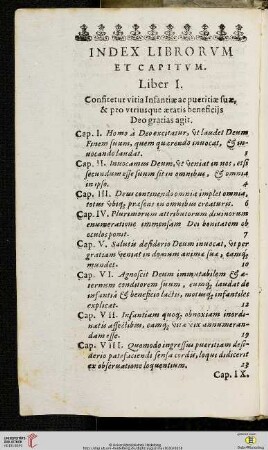 INDEX LIBRORVM
ET CAPITVM.
Liber I.
Confitetur vitia Infantiæ ac pueritiæ suæ,
& pro vtriusque ætatis beneficijs
Deo gratias agit.
Cap. I. Homo à Deo excitatur, vt laudet Deum
Finem suum, quem quærendo invocat, & in-
vocando laudat. 3
Cap. II. Invocamus Deum, vt veniat in nos, etsi
secundum esse suum sit in omnibus, & omnia
in ipso. 4
Cap. III. Deus continendo omnia implet omnia,
totus vbiq; præsens ex omnibus creaturis. 6
Cap. IV. Plurimorum attributorum divinorum
enumeratione immensam Dei bonitatem ob
oculos ponit. 7
Cap. V. Salutis desiderio Deum invocat, vt per
gratiam veniat in domum animæ suæ, eamq;
mundet. 10
Cap. VI. Agnoscit Deum immutabilem & æ-
ternum conditorem suum, eumq; laudat de
infantiâ & beneficio lactis, motusq; infantiles
explicat. 12
Cap. VII. Infantiam quoq; obnoxiam inordi-
natis affectibus, eamq; vitæ vix annumeran-
dam esse. 19
Cap. VIII. Quomodo ingressus pueritiam desi-
derio patefaciendi sensa cordis, loqui didicerit
ex observatione loquentium. 23
Cap. IX.